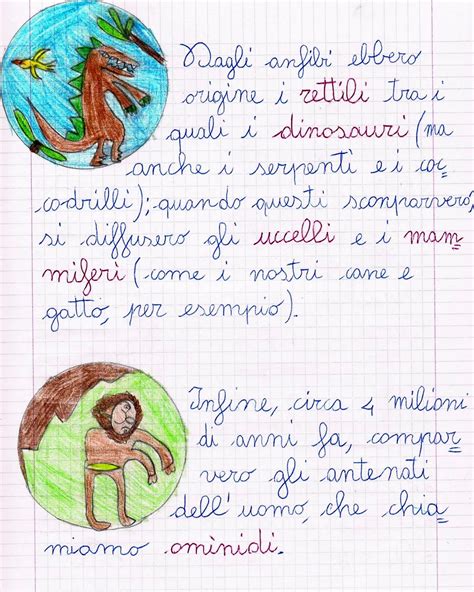 Dagli anfibi ebbero
origine i rettili tra i
quali i dinosauri (ma
anche i serpenti e i coc-
codrilli); quando questi scomparvero,
si diffusero gli uccelli e i mam-
miferi (come i nostri cane e
gatto, per esempio).
Infine, circa 4 milioni
di anni fa, compar-
vero gli antenati
dell'uomo, che chia-
miamo ominidi.